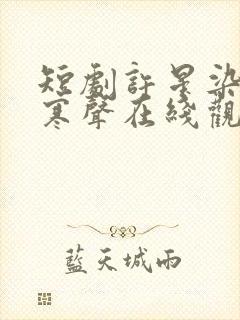 短劇許星染
寒聲在綫觀
藍天城雨